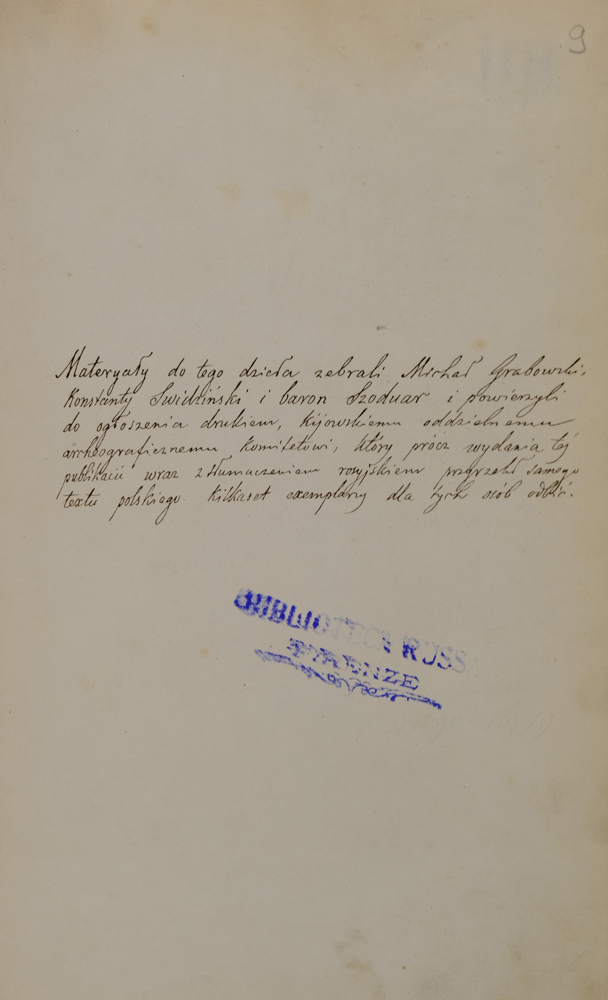 9
Materyały do tego dzieła zebrali Michał Grabowski,
Konstanty Swidziński i baron Szoduar i powierzyli
do ogłoszenia drukiem, Kijowskiemu oddzielnemu
archeograficznemu Komitetowi, który prócz wydania tej
publikacii wraz z tłumaczeniem rosyjskiem przyrzekł samego
textu polskiego kilkaset exemplarzy dla tych osób odbić.
BIBLIOTECA RUSSA
FIRENZE